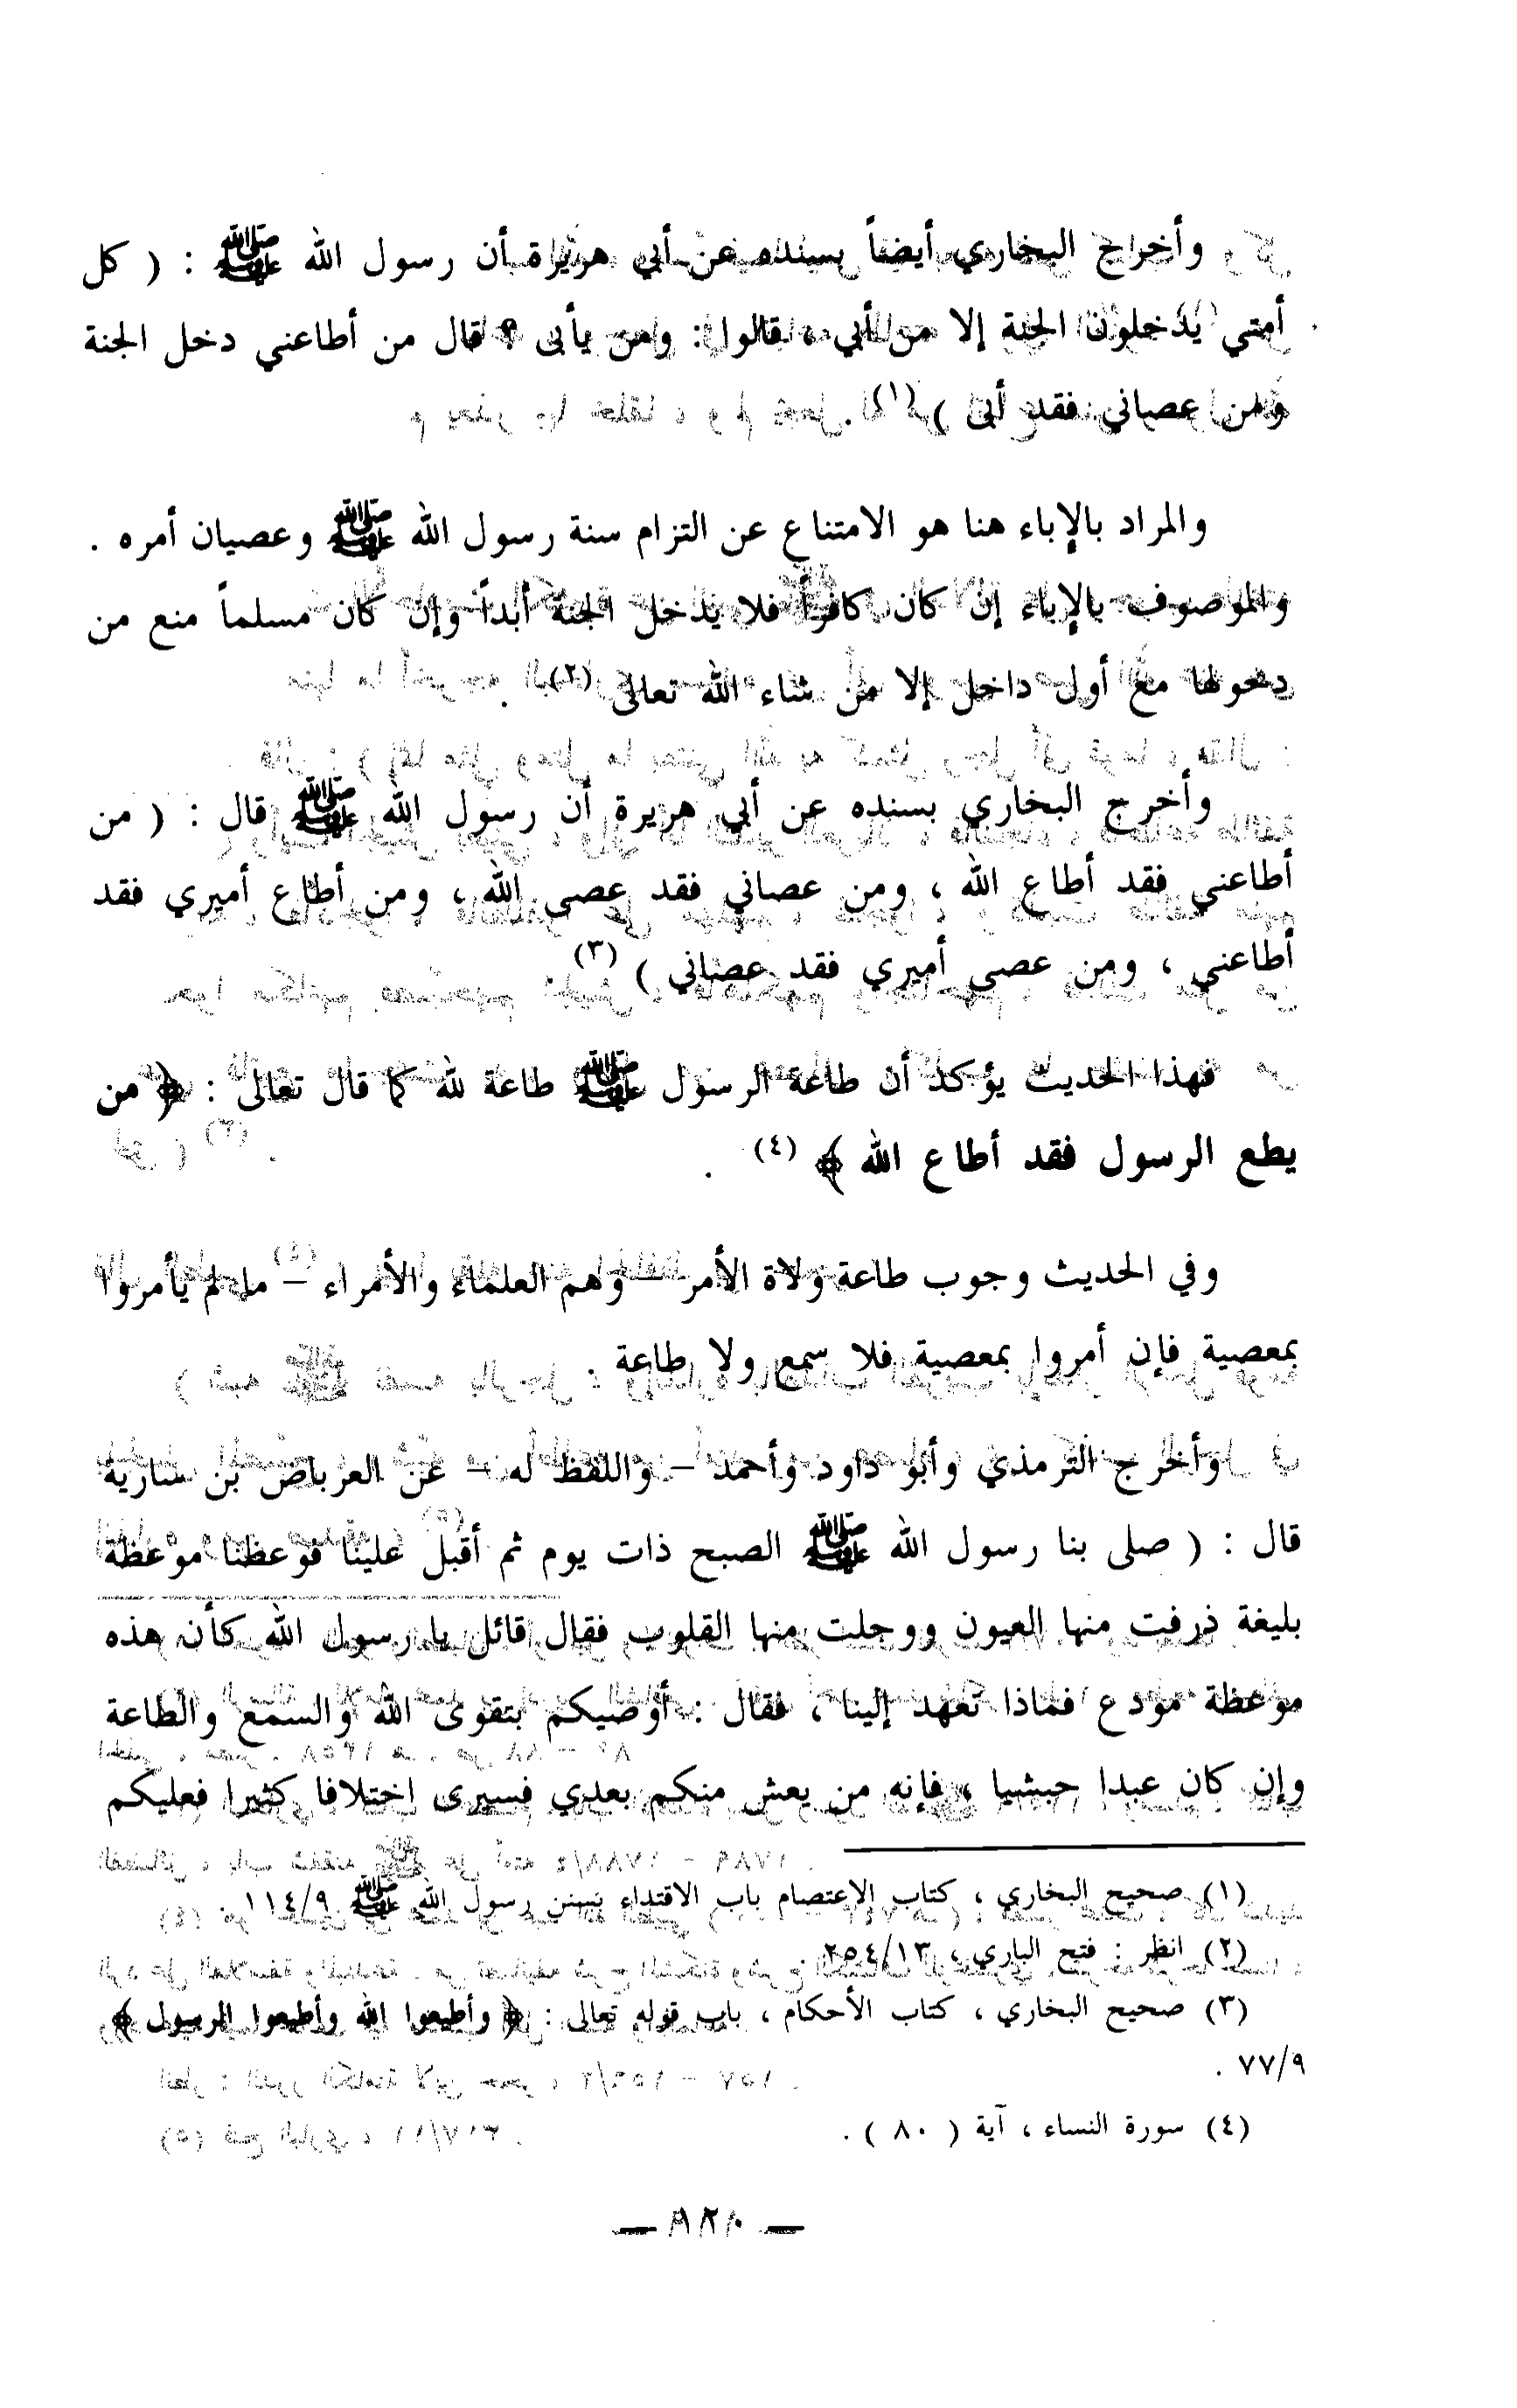 وأخرج البخاري أيضاً بسنده عن أبي هريرة أن رسول الله ﷺ : ( كل
أمتي يدخلون الجنة إلا من أبى ، قالوا : ومن يأبى ؟ قال من أطاعني دخل الجنة
ومن عصاني فقد أبى )(١) .
والمراد بالإباء هنا هو الامتناع عن التزام سنة رسول الله ﷺ وعصيان أمره .
والموصوف بالإباء إن كان كافراً فلا يدخل الجنة أبداً وإن كان مسلماً منع من
دخولها مع أول داخل إلا من شاء الله تعالى (٢) .
وأخرج البخاري بسنده عن أبي هريرة أن رسول الله ﷺ قال : ( من
أطاعني فقد أطاع الله ، ومن عصاني فقد عصى الله ، ومن أطاع أميري فقد
أطاعني ، ومن عصى أميري فقد عصاني ) (٣)
فهذا الحديث يؤكد أن طاعة الرسول ﷺ طاعة لله كما قال تعالى : ﴿ من
يطع الرسول فقد أطاع الله ﴾ (٤) .
وفي الحديث وجوب طاعة ولاة الأمر – وهم العلماء والأمراء – ما لم يأمروا
بمعصية فإن أمروا بمعصية فلا سمع ولا طاعة .
وأخرج الترمذي وأبو داود وأحمد – واللفظ له – عن العرباض بن سارية
قال : ( صلى بنا رسول الله ﷺ الصبح ذات يوم ثم أقبل علينا فوعظنا موعظة
بليغة ذرفت منها العيون ووجلت منها القلوب فقال قائل يا رسول الله كأن هذه
موعظة مودع فماذا تعهد إلينا ، فقال : أوصيكم بتقوى الله والسمع والطاعة
وإن كان عبدا حبشيا ، فإنه من يعش منكم بعدي فسيرى اختلافا كثيرا فعليكم
(١) صحيح البخاري ، كتاب الإعتصام باب الاقتداء بسنن رسول الله ﷺ ١١٤/٩ .
(٢) انظر : فتح الباري ، ٢٥٤/١٣
(٣) صحيح البخاري ، كتاب الأحكام ، باب قوله تعالى : ﴿ وأطيعوا الله وأطيعوا الرسول ﴾
٧٧/٩ .
(٤) سورة النساء ، آية ( ٨٠ ) .